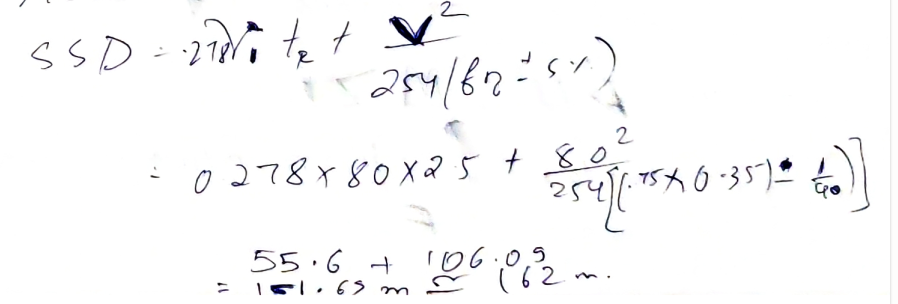 SSD = .278 Vi tR + V² / 254(fη ± s%)
= 0.278 × 80 × 2.5 + 80² / 254[(.75 × 0.35) - 1/40)]
55.6 + 106.09
= 161.69 m ≃ 162 m.